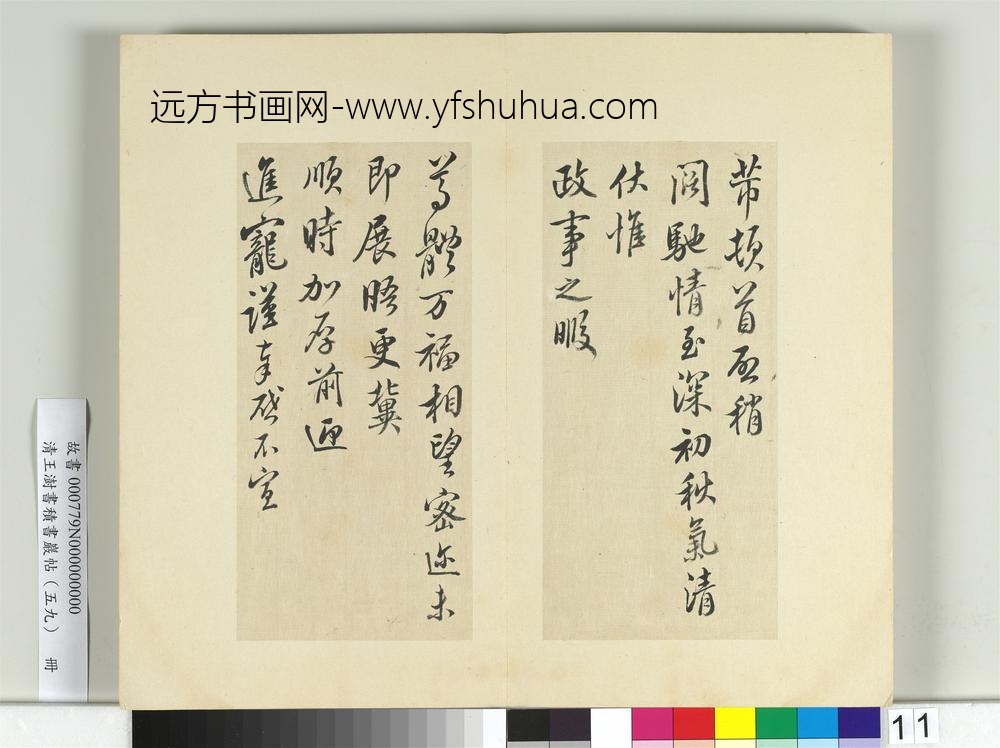 远方书画网-www.yfshuhua.com
芾頓首啟稍
闊馳情至深初秋氣清
伏惟
政事之暇
尊體万福相望密迩未
即展晤更冀
順時加厚前迎
進寵謹奉啟不宣
故書 000779N000000000
清王澍書積書巖帖（五九） 冊
11